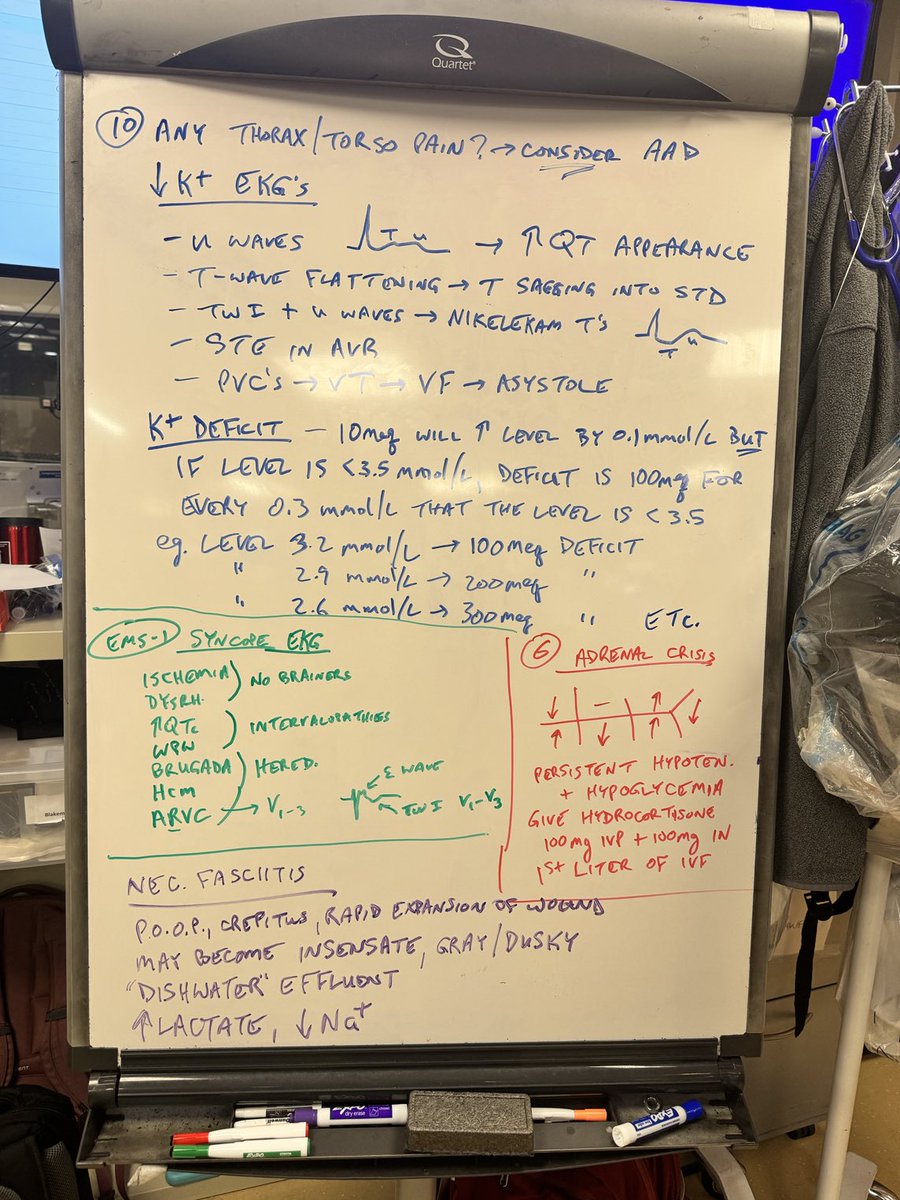 Quartet
10 ANY THORAX/TORSO PAIN? → CONSIDER AAD
↓ K+ EKG's
- U WAVES T U → ↑ QT APPEARANCE
- T-WAVE FLATTENING → T SAGGING INTO STD
- TWI + U WAVES → NIKELEKAM T's T U
- STE IN AVR
- PVC's → VT → VF → ASYSTOLE
K+ DEFICIT - 10meq WILL ↑ LEVEL BY 0.1mmol/L BUT
IF LEVEL IS <3.5 mmol/L, DEFICIT IS 100meq FOR
EVERY 0.3 mmol/L THAT THE LEVEL IS < 3.5
eg. LEVEL 3.2 mmol/L → 100meq DEFICIT
" 2.9 mmol/L → 200meq "
" 2.6 mmol/L → 300meq " ETC.
EMS-1 SYNCOPE EKG
ISCHEMIA
DYSRH. NO BRAINERS
↑QTc
WPW INTERVALOPATHIES
BRUGADA
HCM HERED.
ARVC → V1-3 Ɛ WAVE TWI V1-V3
6 ADRENAL CRISIS
↓ - ↑ ↓
↑ ↓ ↑
PERSISTENT HYPOTEN.
+ HYPOGLYCEMIA
GIVE HYDROCORTISONE
100mg IVP + 100mg IN
1st LITER OF IVF
NEC. FASCIITIS
P.O.O.P., CREPITUS, RAPID EXPANSION OF WOUND
MAY BECOME INSENSATE, GRAY/DUSKY
"DISHWATER" EFFLUENT
↑LACTATE, ↓Na+
EXPO
dry erase
EXPO
Blakem